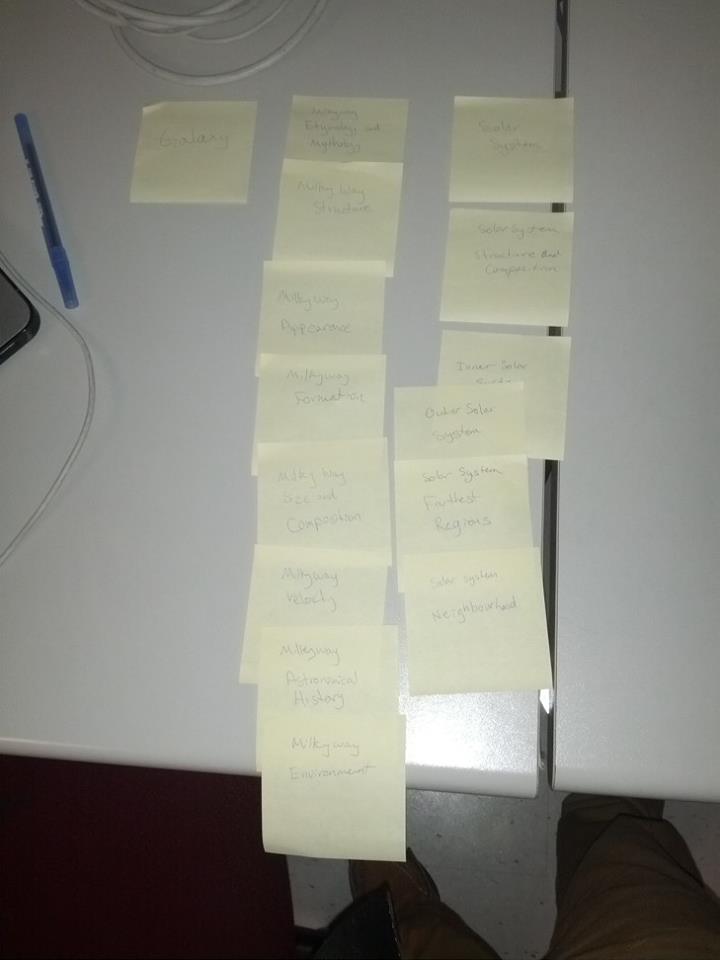 Galaxy
Milkyway
Etymology and
Mythology
Milky Way
Structure
Milkyway
Appearance
Milkyway
Formation
Milky Way
Size and
Composition
Milkyway
Velocity
Milkyway
Astronomical
History
Milkyway
Environment
Solar
System
Solar System
Structure and
Composition
Inner Solar
Outer Solar
System
Solar System
Farthest
Regions
Solar System
Neighbourhood